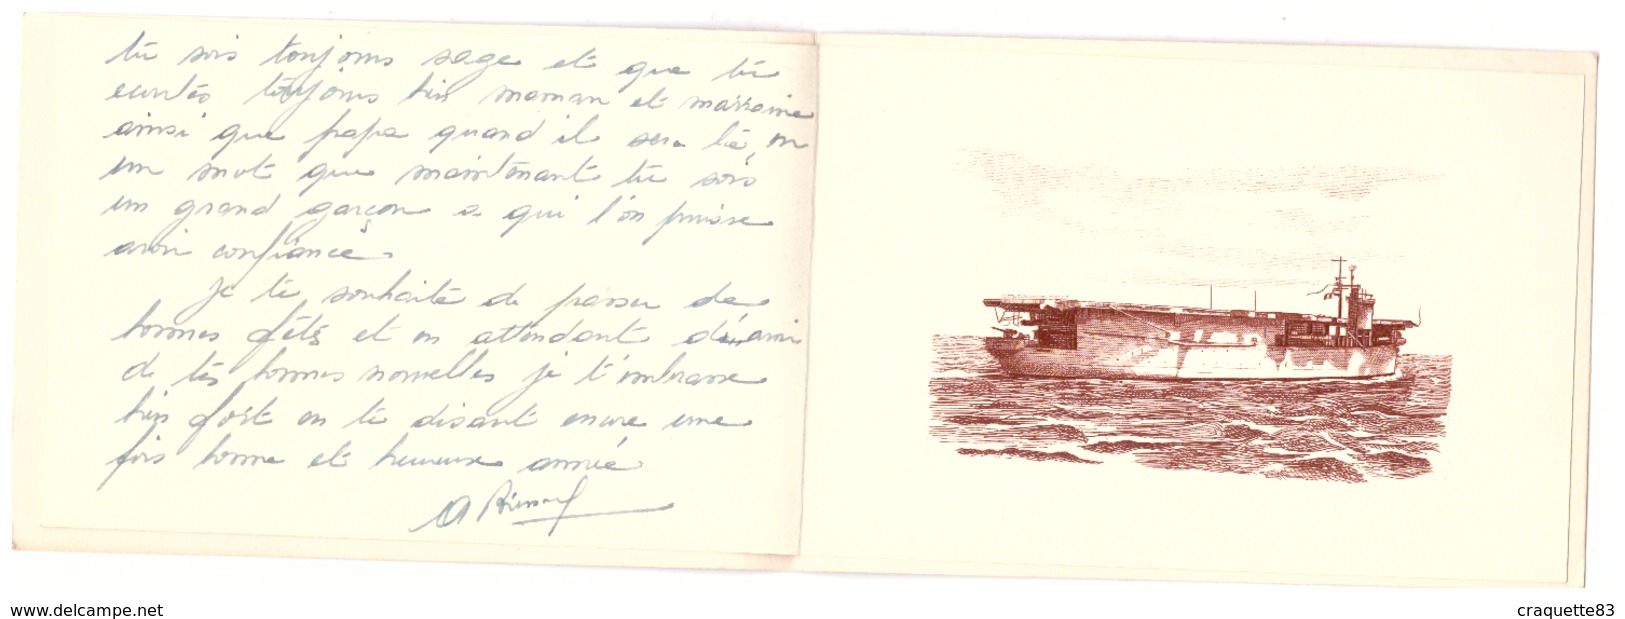 tu sois toujours sage et que tu
ecoutes toujours bien maman et marraine
ainsi que papa quand il sera là, en
un mot que maintenant tu sois
un grand garçon a qui l'on puisse
avoir confiance.
Je te souhaite de passer de
bonnes fêtes et en attendant d'avoir
de tes bonnes nouvelles je t'embrasse
bien fort en te disant encore une
fois bonne et heureuse année
www.delcampe.net
craquette83